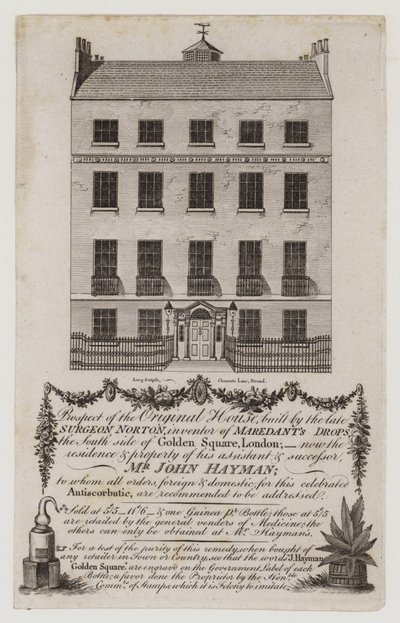 Long Sculpsit, Clements Lane, Strand.
Prospect of the Original House, built by the late
SURGEON NORTON, inventor of MAREDANT'S DROPS,
the South side of Golden Square, London; — now the
residence & property of his assistant & successor,
Mr. JOHN HAYMAN;
to whom all orders, foreign & domestic, for this celebrated
Antiscorbutic, are recommended to be addressed.
Sold at 5/5 — & one Guinea pr. Bottle; those at 5/5
are retailed by the general venders of Medicine; the
others can only be obtained at Mr. Hayman's.
For a test of the purity of this remedy, when bought of
any retailer in Town or Country, see that the words "J. Hayman,
Golden Square," are engraved on the Government Label of each
Bottle; a favor done the Proprietor by the Honble.
Commrs. of Stamps, which it is Felony to imitate.